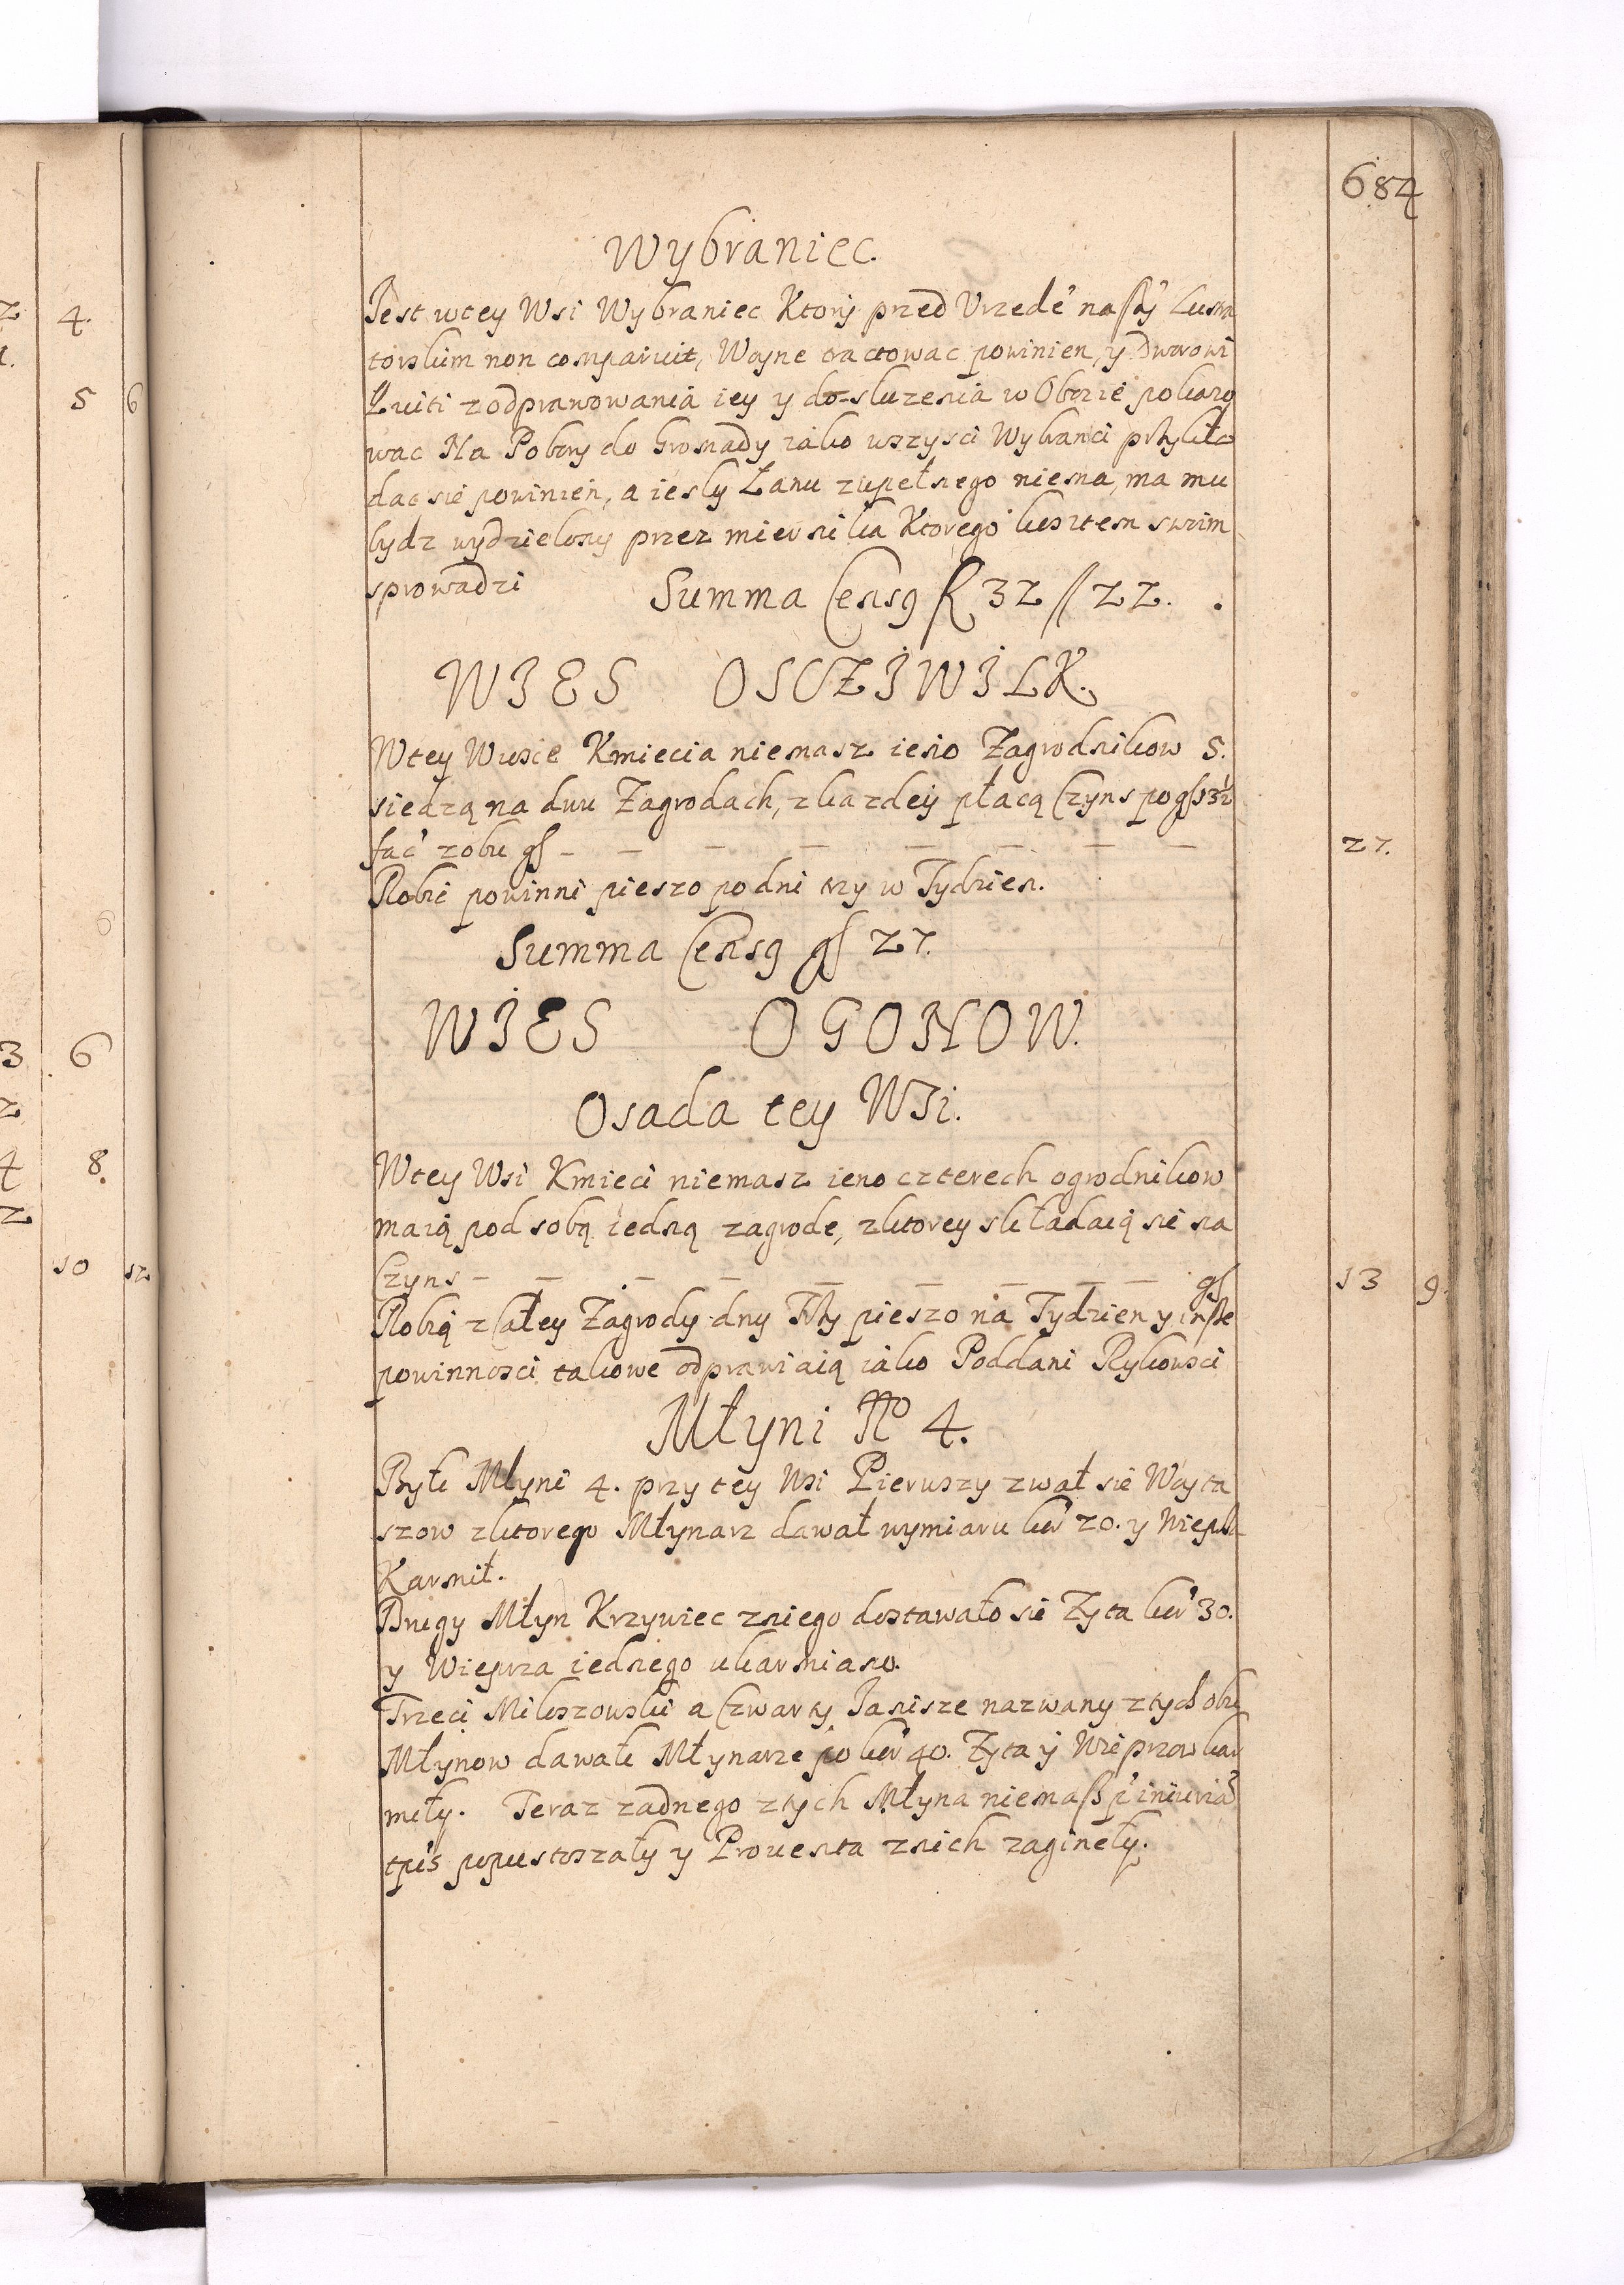 684
Wybraniec.
Jest wtey Wsi Wybraniec Ktory przed Vrzedē naszȳ Lustra
torskim non comparuit, Woyne tractowac powinien, y Dworowi
Kwiti z odprawowania iey y do-sluzenia w Obozie pokazo
wac Na Pobory do Gromady iako wszysci Wybranci przykła
dac sie powinien, a iesly Łanu zupełnego niema, ma mu
bydz wydzielony przez miernika Ktorego kosztem swim
sprowadzi Summa Censq fl 32 // 22.
WIES OSCZIWILK.
Wtey Wiosce Kmiecia niemasz ieno Zagrodnikow 5.
siedzą na dwu Zagrodach, z kazdey płacą Czyns po gſ 13½
fać z obu gſ 27.
Robic powinni pieszo po dni trzy w Tydzien.
Summa Censq gſ 27.
WIES OGONOW.
Osada tey Wsi.
Wtey Wsi Kmieci niemasz ieno czterech ogrodnikow
maią pod sobą iedną zagrode, z ktorey składaią sie na
Czyns gſ 13 9.
Robią z Całey Zagrody dny Trzy pieszo na Tydzien y insze
powinnosci takowe odprawiaią iako Poddani Rykowsci
Młyni No 4.
Byłi Młyni 4. przy tey Wsi Pierwszy zwał sie Woyta
szow z ktorego Młynarz dawał wymiaru kor 20. y Wieprza
Karmił.
Drugy Młyn Krzywiec z niego dostawało sie Zyta kor 30.
y Wieprza iednego ukarmiano.
Trzeci Mikoszowski a Czwarty Janisze nazwany z tych obu
Młynow dawałi Młynarze po kor 40. Zyta y Wieprzow kar
miły. Teraz zadnego z tych Młyna niemasz p iniuriā
tpis popustoszały y Prouenta z nich zagineły.